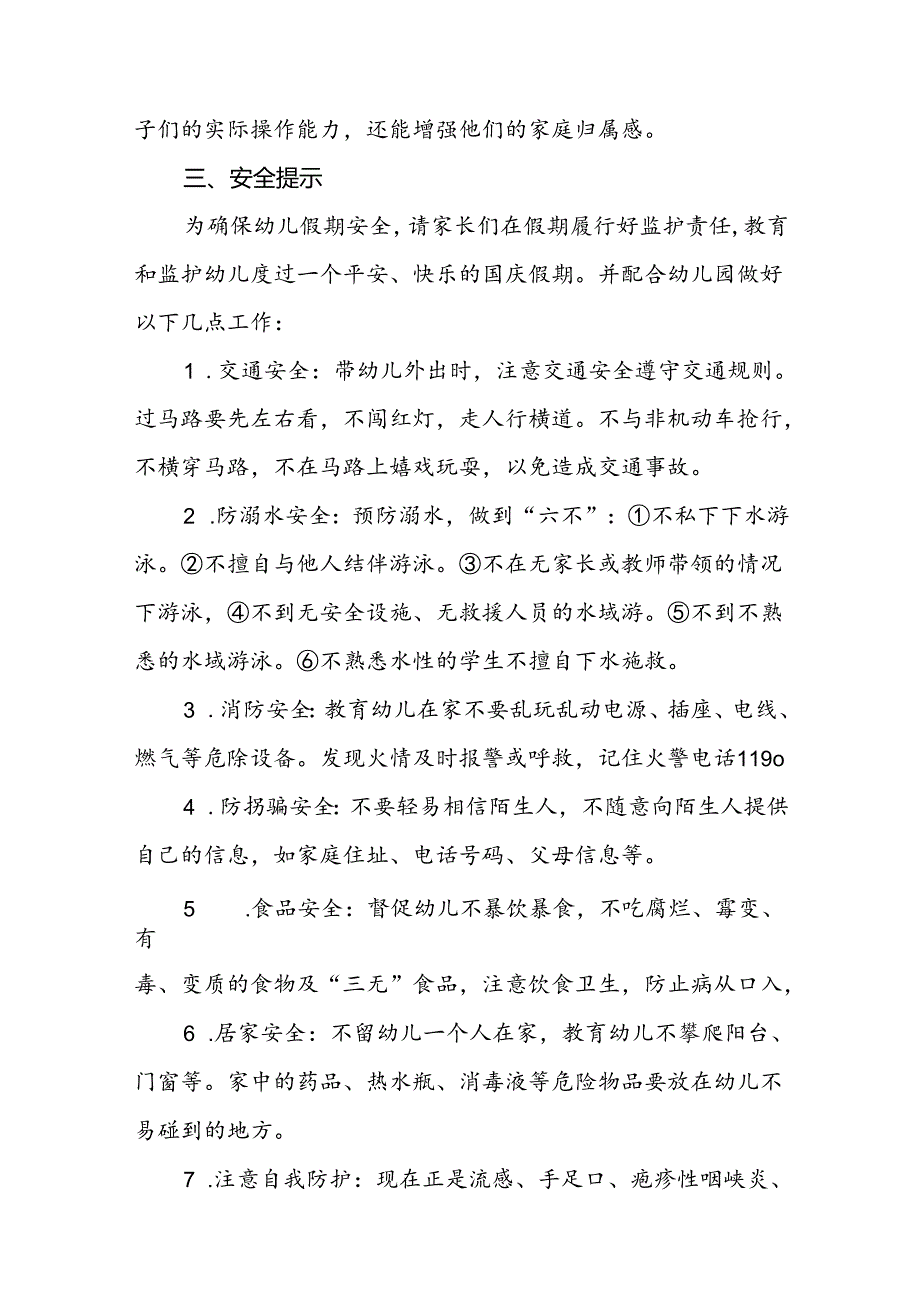 子们的实际操作能力，还能增强他们的家庭归属感。
三、安全提示
为确保幼儿假期安全，请家长们在假期履行好监护责任，教育
和监护幼儿度过一个平安、快乐的国庆假期。并配合幼儿园做好
以下几点工作：
1 .交通安全：带幼儿外出时，注意交通安全遵守交通规则。
过马路要先左右看，不闯红灯，走人行横道。不与非机动车抢行，
不横穿马路，不在马路上嬉戏玩耍，以免造成交通事故。
2 .防溺水安全：预防溺水，做到“六不”：①不私下下水游
泳。②不擅自与他人结伴游泳。③不在无家长或教师带领的情况
下游泳，④不到无安全设施、无救援人员的水域游。⑤不到不熟
悉的水域游泳。⑥不熟悉水性的学生不擅自下水施救。
3 .消防安全：教育幼儿在家不要乱玩乱动电源、插座、电线、
燃气等危除设备。发现火情及时报警或呼救，记住火警电话119o
4 .防拐骗安全：不要轻易相信陌生人，不随意向陌生人提供
自己的信息，如家庭住址、电话号码、父母信息等。
5 .食品安全：督促幼儿不暴饮暴食，不吃腐烂、霉变、
有
毒、变质的食物及“三无”食品，注意饮食卫生，防止病从口入，
6 .居家安全：不留幼儿一个人在家，教育幼儿不攀爬阳台、
门窗等。家中的药品、热水瓶、消毒液等危险物品要放在幼儿不
易碰到的地方。
7 .注意自我防护：现在正是流感、手足口、疱疹性咽峡炎、